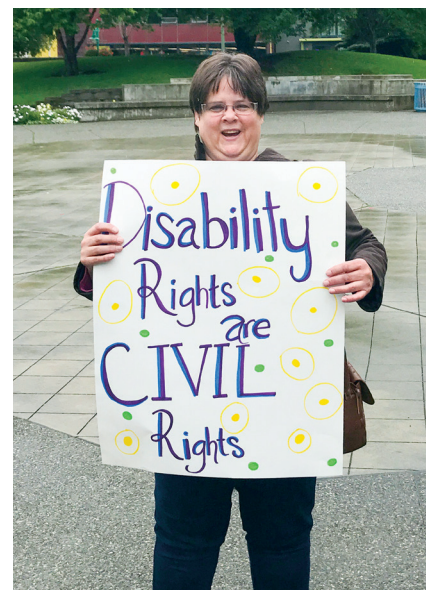 Disability
Rights
are
CIVIL
Rights